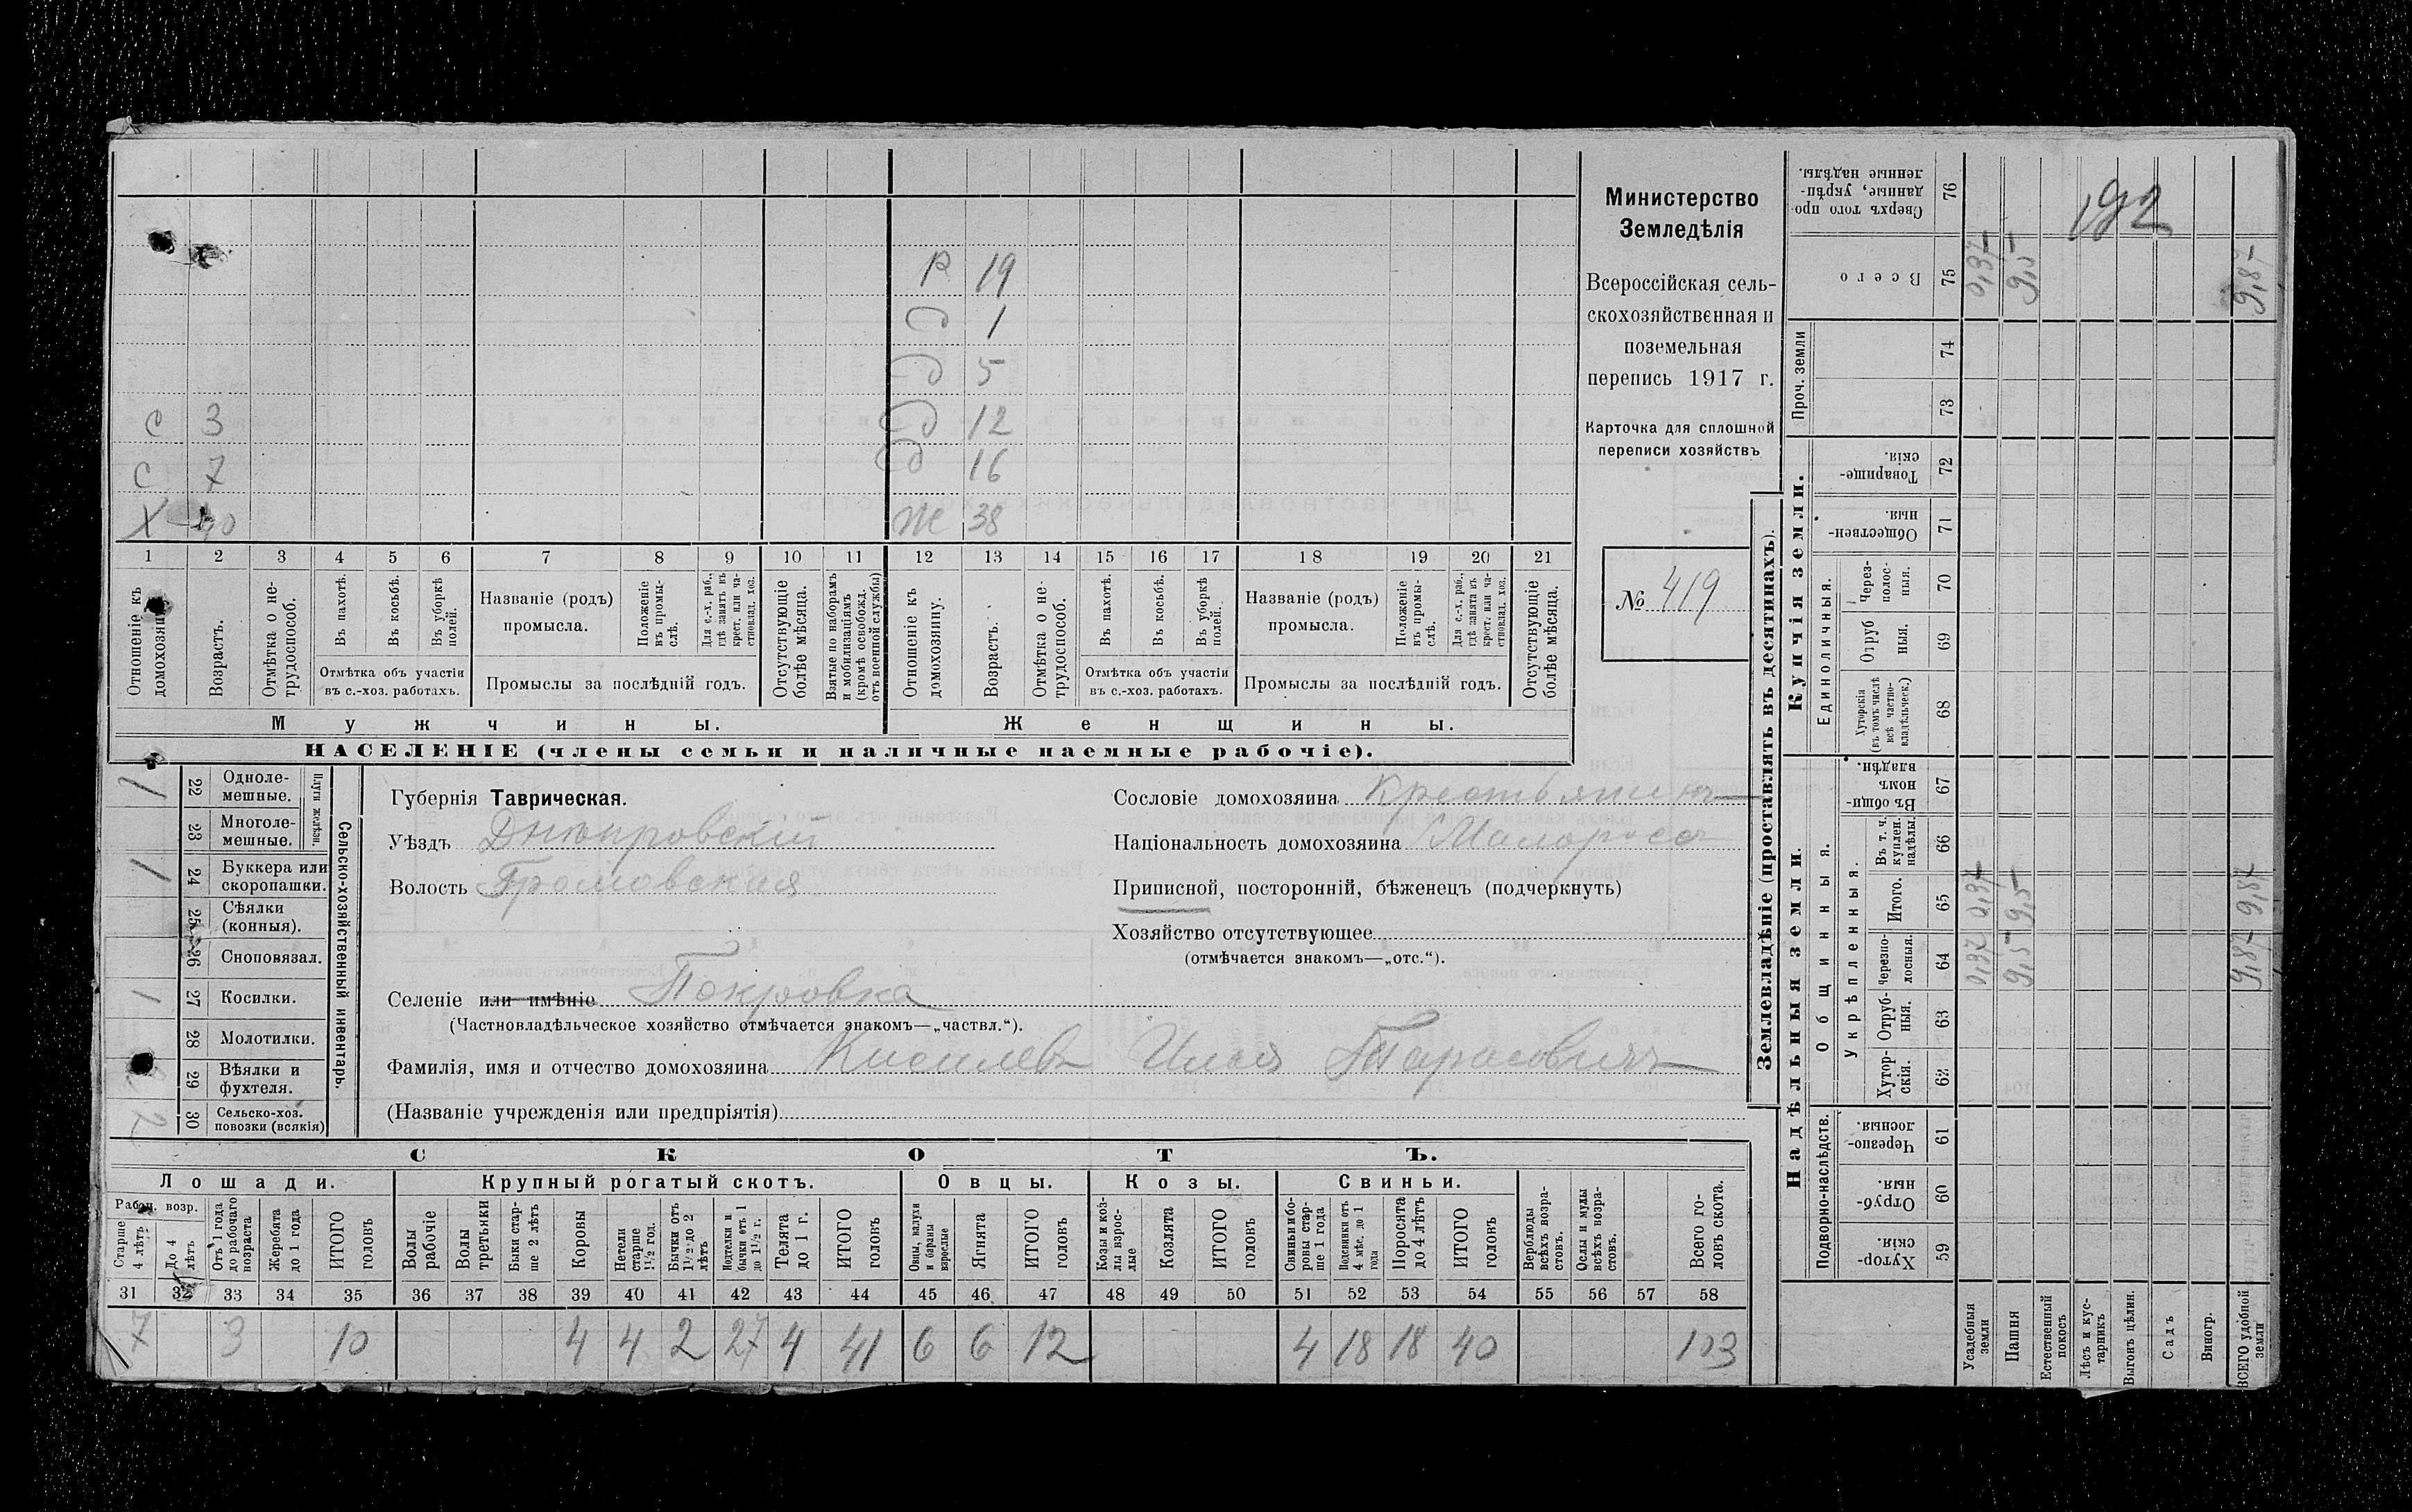 Р 19
д 1
д 5
с 3 д 12
с 7 д 16
Х 40 Ж 38
1 2 3 4 5 6 7 8 9 10 11 12 13 14 15 16 17 18 19 20 21
Отношеніе къ домохозяину.
Возрастъ.
Отмѣтка о нетрудоспособ.
Въ пахотѣ.
Въ косьбѣ.
Въ уборкѣ полей.
Отмѣтка объ участіи
въ с.-хоз. работахъ.
Названіе (родъ)
промысла.
Положеніе въ промыслѣ.
Для с.-х. раб., гдѣ занятъ въ крест. или частновлад. хоз.
Промыслы за послѣдній годъ.
Отсутствующіе болѣе мѣсяца.
Взятые по наборамъ и мобилизаціямъ (кромѣ освобожд. отъ военной службы)
Отношеніе къ домохозяину.
Возрастъ.
Отмѣтка о нетрудоспособ.
Въ пахотѣ.
Въ косьбѣ.
Въ уборкѣ полей.
Отмѣтка объ участіи
въ с.-хоз. работахъ.
Названіе (родъ)
промысла.
Положеніе въ промыслѣ.
Для с.-х. раб., гдѣ занята въ крест. или частновлад. хоз.
Промыслы за послѣдній годъ.
Отсутствующіе болѣе мѣсяца.
Мужчины.
Женщины.
НАСЕЛЕНІЕ (члены семьи и наличные наемные рабочіе).
Министерство
Земледѣлія
Всероссійская сель-
скохозяйственная и
поземельная
перепись 1917 г.
Карточка для сплошной
переписи хозяйствъ
№ 419
Сельско-хозяйственный инвентарь.
Плуги желѣзн.
1 22 Одноле-
мешные.
23 Многоле-
мешные.
1 24 Буккера или
скоропашки.
25 Сѣялки
(конныя).
26 Сноповязал.
1 27 Косилки.
28 Молотилки.
29 Вѣялки и
фухтеля.
2 30 Сельско-хоз.
повозки (всякія)
Губернія Таврическая.
Уѣздъ Днѣпровскій
Волость Громовская
Селеніе или имѣніе Покровка
(Частновладѣльческое хозяйство отмѣчается знакомъ—„частвл.“).
Фамилія, имя и отчество домохозяина Киселевъ Илья Тарасовичъ
(Названіе учрежденія или предпріятія)
Сословіе домохозяина Крестьянинъ
Національность домохозяина Малороссъ
Приписной, посторонній, бѣженецъ (подчеркнуть)
Хозяйство отсутствующее
(отмѣчается знакомъ—„отс.“).
СКОТЪ.
Лошади.
Крупный рогатый скотъ.
Овцы.
Козы.
Свиньи.
Рабоч. возр.
Старше 4 лѣтъ
До 4 лѣтъ
Отъ 1 года до рабочаго возраста
Жеребята до 1 года
ИТОГО головъ
Волы рабочіе
Волы третьяки
Быки старше 2 лѣтъ
Коровы
Нетели старше 1½ год.
Бычки отъ 1½ до 2 лѣтъ
Подтелки и бычки отъ 1 до 1½ г.
Телята до 1 г.
ИТОГО головъ
Овцы, валухи и бараны взрослые
Ягнята
ИТОГО головъ
Козы и козлы взрослые
Козлята
ИТОГО головъ
Свиньи и боровы старше 1 года
Подсвинки отъ 4 мѣс. до 1 года
Поросята до 4 лѣтъ
ИТОГО головъ
Верблюды всѣхъ возрастовъ.
Ослы и мулы всѣхъ возрастовъ.
Всего головъ скота.
31 32 33 34 35 36 37 38 39 40 41 42 43 44 45 46 47 48 49 50 51 52 53 54 55 56 57 58
7 3 10 4 4 2 27 4 41 6 6 12 4 18 18 40 103
Землевладѣніе (проставлять въ десятинахъ).
192
Сверхъ того проданные, укрѣпленные надѣлы. 76
Всего 75 0,37 9,5 9,87
Проч. земли 74
73
Купчія земли.
Товарищескія. 72
Общественныя. 71
Единоличныя.
Черезполосныя. 70
Отрубныя. 69
Хуторскія (въ томъ числѣ всѣ частновладѣльческ.) 68
Надѣльныя земли.
Общинныя.
Въ общинномъ владѣн. 67
Укрѣпленныя.
Въ т. ч. куплен. надѣлы. 66
Итого. 65 0,37 9,5 9,87
Черезполосныя. 64 0,37 9,5 9,87
Отрубныя. 63
Хуторскія. 62
Подворно-наслѣдств.
Черезполосныя 61
Отрубныя. 60
Хуторскія. 59
Усадебныя земли
Пашня
Естественный покосъ
Лѣсъ и кустарникъ
Выгонъ цѣлин.
Садъ
Виногр.
ВСЕГО удобной земли